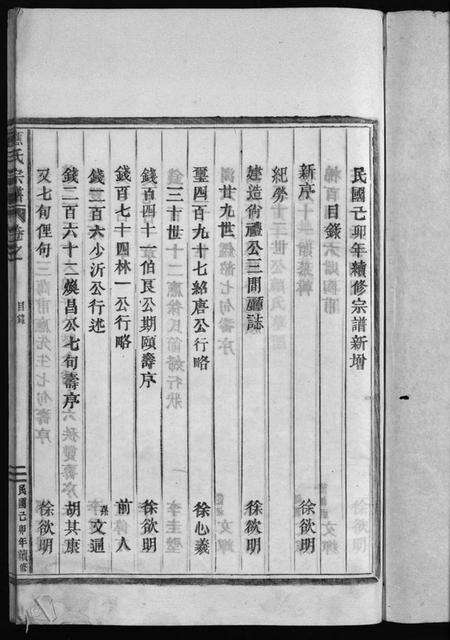 民國己卯年續修宗譜新增
目錄
新序 徐欲明
紀勞
建造尚禮公三間廳誌 徐欲明
廿九世
璽四百九十七紹唐公行略 徐心羲
三十世
錢百四十一伯良公期頤壽序 徐欲明
錢百七十四林一公行略 前人
錢二百六少沂公行述 孫文通
錢二百六十二煥昌公七旬壽序 胡其康
又七旬俚句 徐欲明
氏宗譜 卷之 目錄 民國己卯年續修